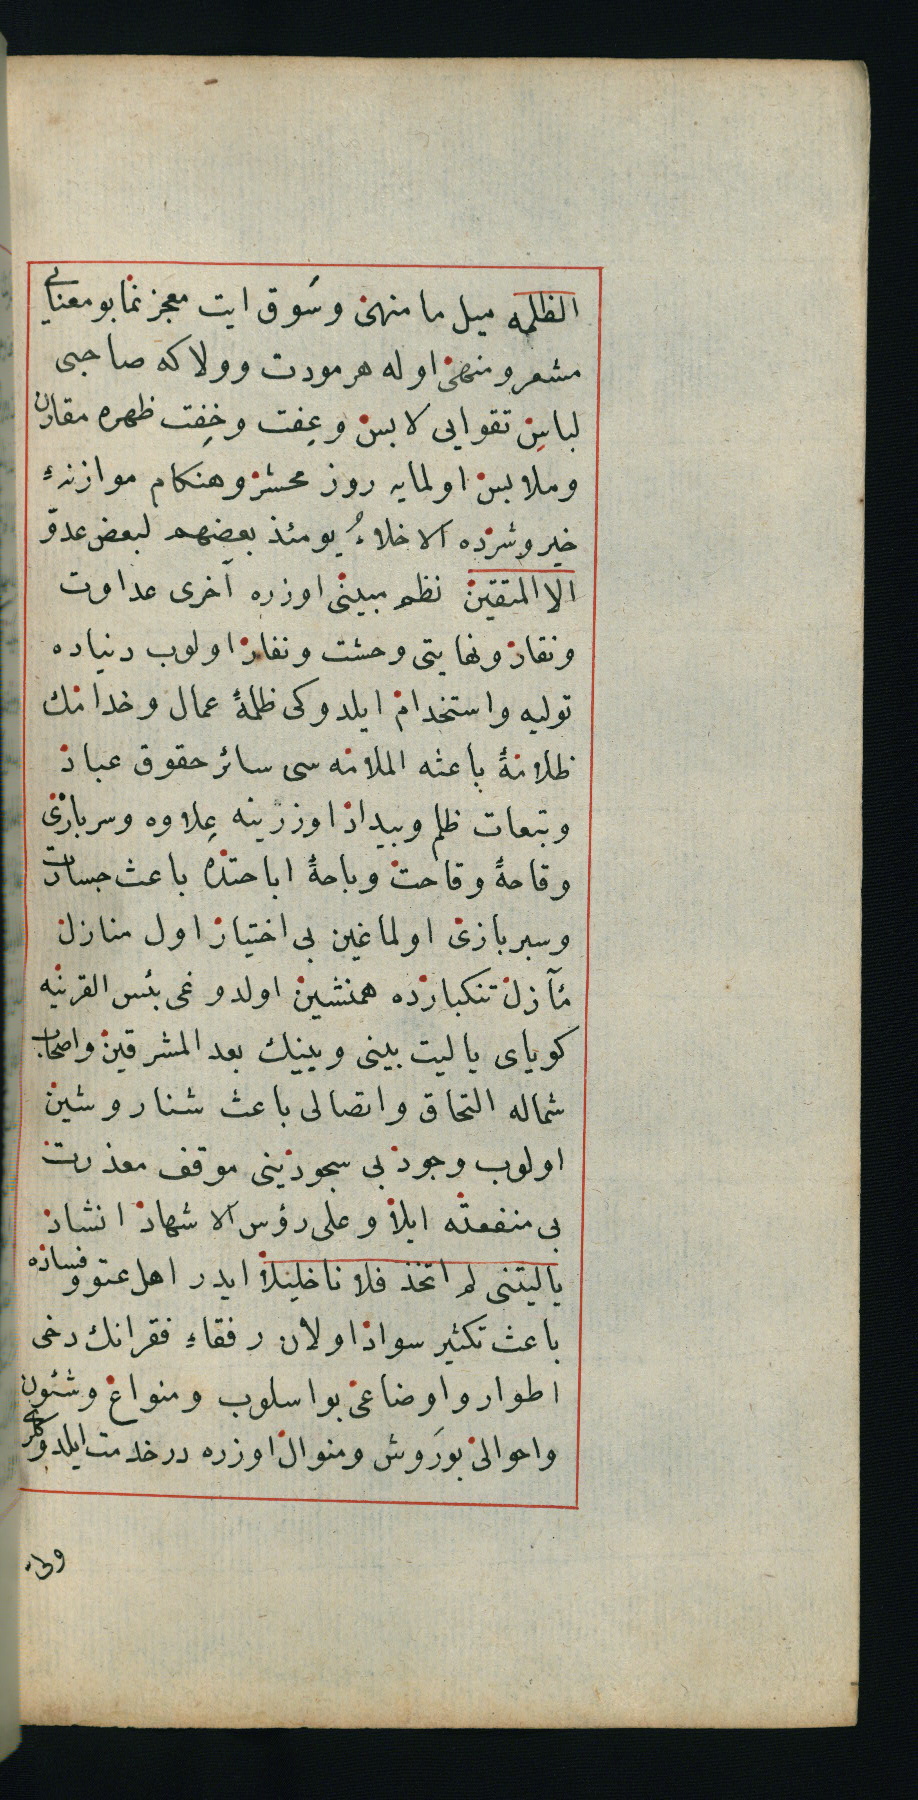 الظلمه میل ما منهی وسَوق ایت معجز نما بو معنایی
مشعر ومنهی اوله هر مودت وولا که صاحبی
لباسِ تقوایی لابس وعِفت وخِفت ظهره مقارن
وملابس اولمایه روز محشر وهنکام موازنهٔ
خیر وشرده الاخلاءُ یومئذ بعضهم لبعض عدوّ
الا المتقین نظم مبینی اوزره آخری عداوت
ونقار ونهایتی وحشت ونفار اولوب دنیاده
تولیه واستخدام ایلدوکی ظلمهٔ عمال وخدامنك
ظلامهٔ باعثه الملامه سی سائر حقوق عباد
وتبعات ظلم وبیداد اوزرینه عِلاوه وسربازی
وقاحهٔ وقاحت وباحهٔ اباحتده باعث جسارت
وسربازی اولماغین بی اختیار اول منازل
مآزل تنکبارده همنشین اولدوغی بئس القرنیه
کویای یالیت بینی وبینك بعد المشرقین واصحاب
شماله التحاق واتصالی باعث شنار وشین
اولوب وجود بی سجودینی موقف معذرت
بی منفعته ایلا وعلی رؤس الاشهاد انشاد
یالیتنی لم اتخذ فلانا خلیلا ایدر اهل عتو وفساده
باعث تکثیر سواد اولان رفقاء فقرانك دخی
اطوار واوضاعی بو اسلوب ومنواع وشئون
واحوالی بو رَوش ومنوال اوزره در خدمت ایلدوکلری